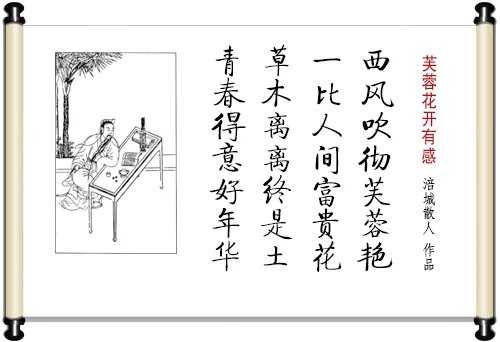 芙蓉花开有感
涪城散人 作品
西风吹彻芙蓉艳
一比人间富贵花
草木离离终是土
青春得意好年华